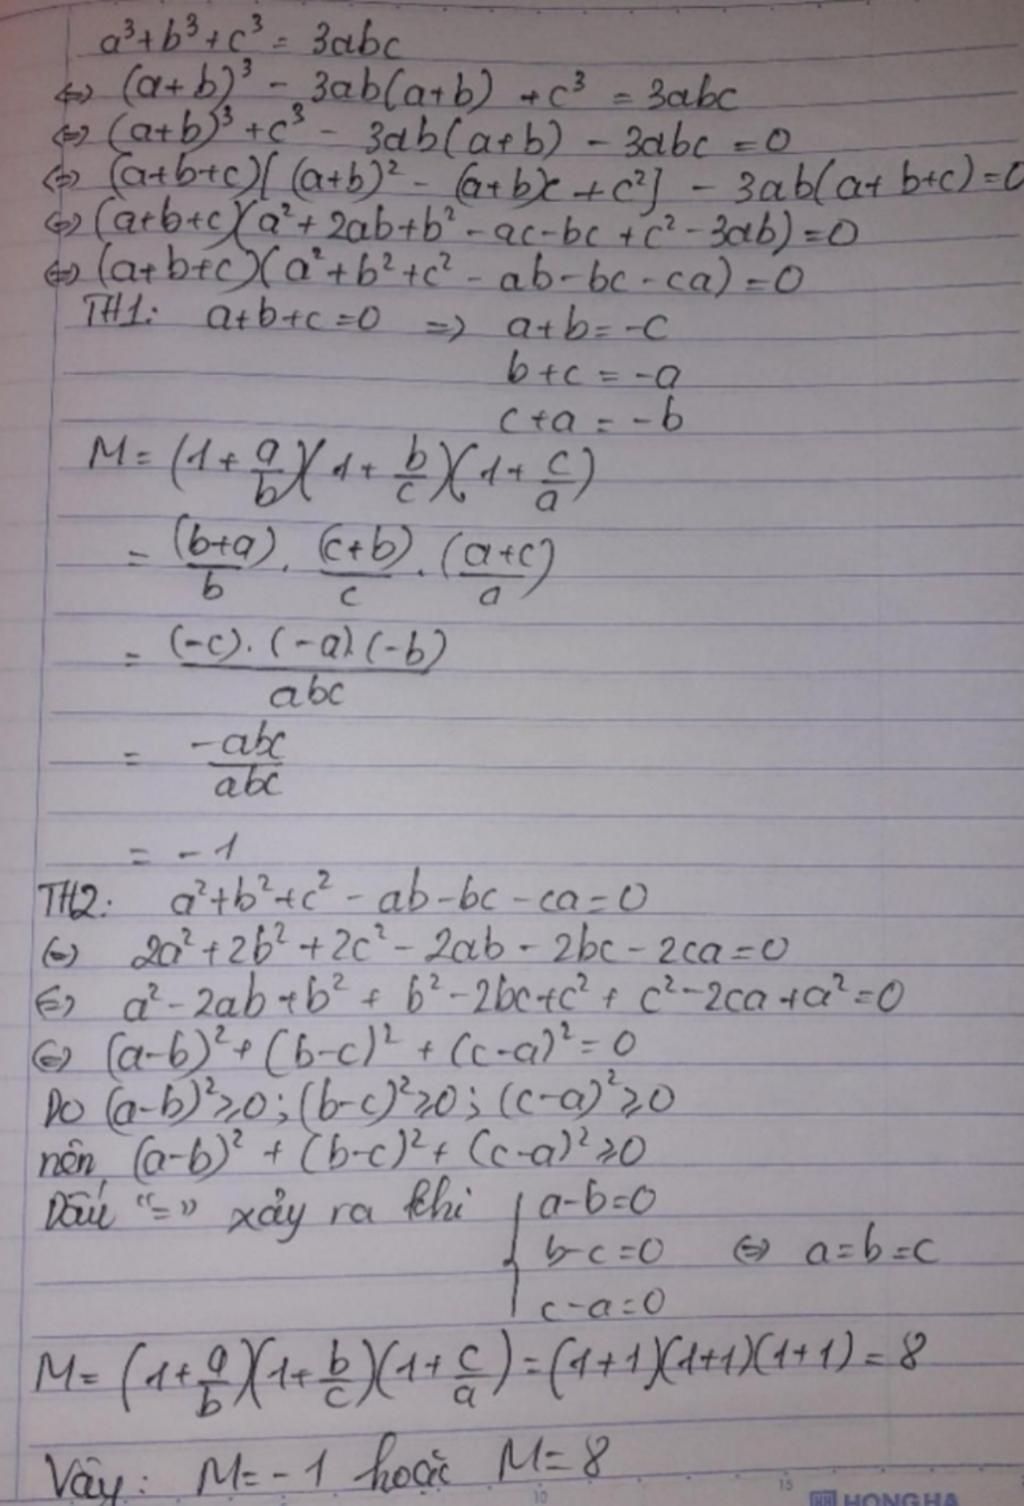 a³+b³+c³ = 3abc
⇔ (a+b)³ - 3ab(a+b) +c³ = 3abc
⇔ (a+b)³+c³ - 3ab(a+b) - 3abc = 0
⇔ (a+b+c)[(a+b)² - (a+b)c + c²] - 3ab(a+b+c)=0
⇔ (a+b+c)(a²+2ab+b²-ac-bc+c²-3ab)=0
⇔ (a+b+c)(a²+b²+c²-ab-bc-ca)=0
TH1: a+b+c=0 => a+b=-c
b+c=-a
c+a=-b
M= (1+a/b)(1+b/c)(1+c/a)
= (b+a)/b . (c+b)/c . (a+c)/a
= (-c).(-a).(-b)/abc
= -abc/abc
= -1
TH2: a²+b²+c²-ab-bc-ca=0
⇔ 2a²+2b²+2c²-2ab-2bc-2ca=0
⇔ a²-2ab+b² + b²-2bc+c² + c²-2ca+a²=0
⇔ (a-b)²+(b-c)²+(c-a)²=0
Do (a-b)²≥0; (b-c)²≥0; (c-a)²≥0
nên (a-b)² + (b-c)² + (c-a)²≥0
Dấu "=" xảy ra khi { a-b=0
b-c=0 ⇔ a=b=c
c-a=0
M= (1+a/b)(1+b/c)(1+c/a)=(1+1)(1+1)(1+1)=8
Vậy: M=-1 hoặc M=8
10 15 HONGHA